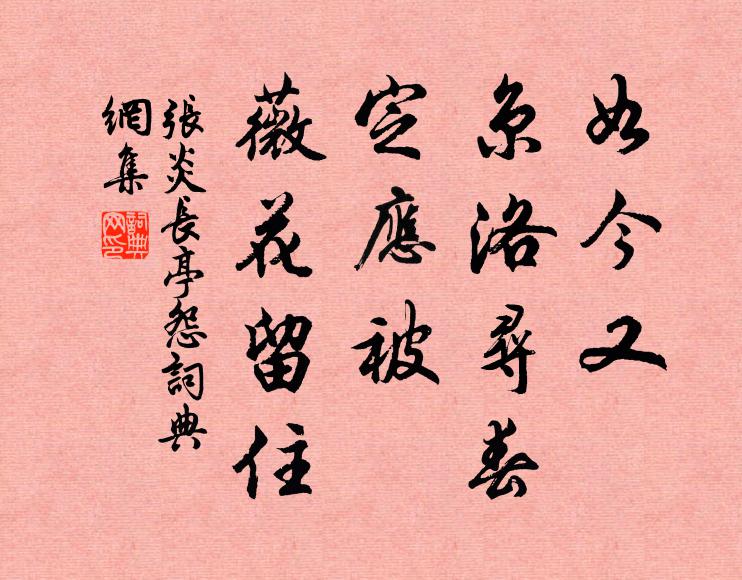 如今又
京洛尋春
定應被
薇花留住
張炎長亭怨詞典
網集
詞典
网印